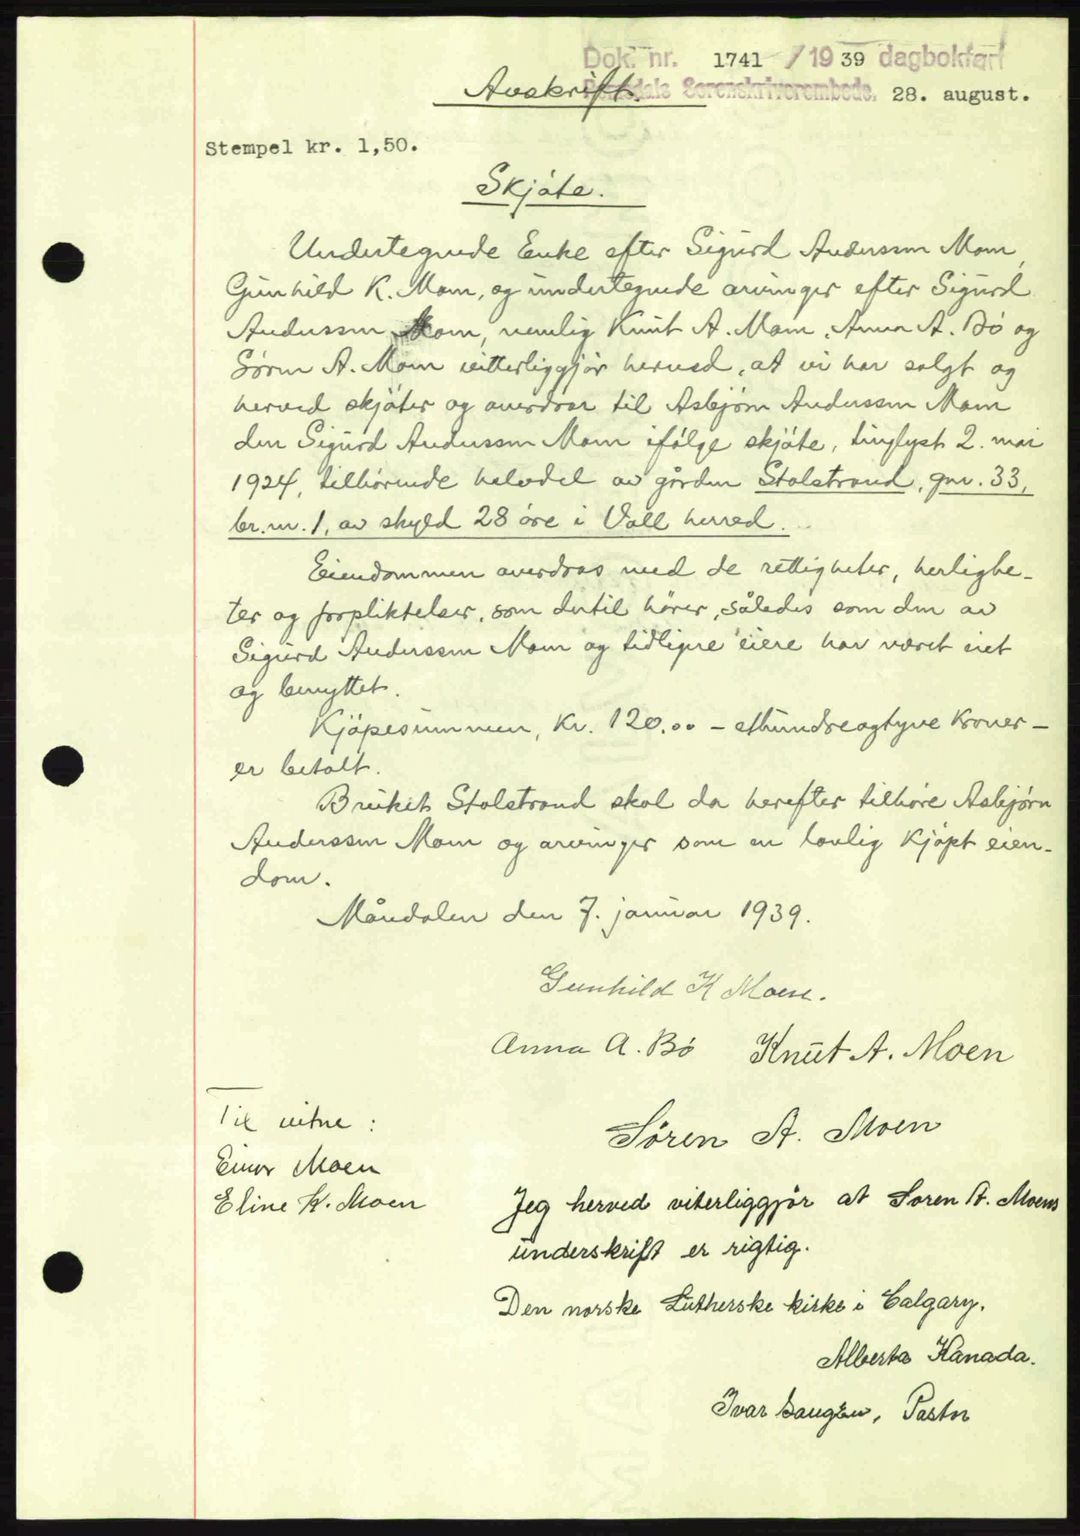 Dok. nr. 1741 / 1939 dagbokført
Avskrift. Romsdals Sorenskriverembede. 28. august.
Stempel kr. 1,50.
Skjöte.
Undertegnede Enke efter Sigurd Anderssen Moen,
Gunhild K. Moen, og undertegnede arvinger efter Sigurd
Anderssen Moen, nemlig Knut A. Moen, Anna A. Bö og
Sören A. Moen vitterliggjör herved, at vi har solgt og
herved skjöter og overdrar til Asbjörn Anderssen Moen
den Sigurd Anderssen Moen ifölge skjöte, tinglyst 2. mai
1924, tilhörende halvdel av gården Stolstrand, gnr. 33,
br.nr. 1, av skyld 28 öre i Voll herred.
Eiendommen overdras med de rettigheter, herlighe-
ter og forpliktelser, som dertil hörer, således som den av
Sigurd Anderssen Moen og tidligere eiere har været eiet
og benyttet.
Kjöpesummen, kr. 120.00 – etthundreogtyve kroner –
er betalt.
Bruket Stolstrand skal da herefter tilhöre Asbjörn
Anderssen Moen og arvinger som en lovlig kjöpt eien-
dom.
Måndalen den 7. januar 1939.
Gunhild K Moen.
Anna A. Bö Knut A. Moen
Til vitne :
Sören A. Moen
Einar Moen
Eline K. Moen
Jeg herved viterliggjör at Soren A. Moens
underskrift er rigtig.
Den norske Lutherske kirke i Calgary.
Alberta Kanada.
Ivar Saugen, Pastor